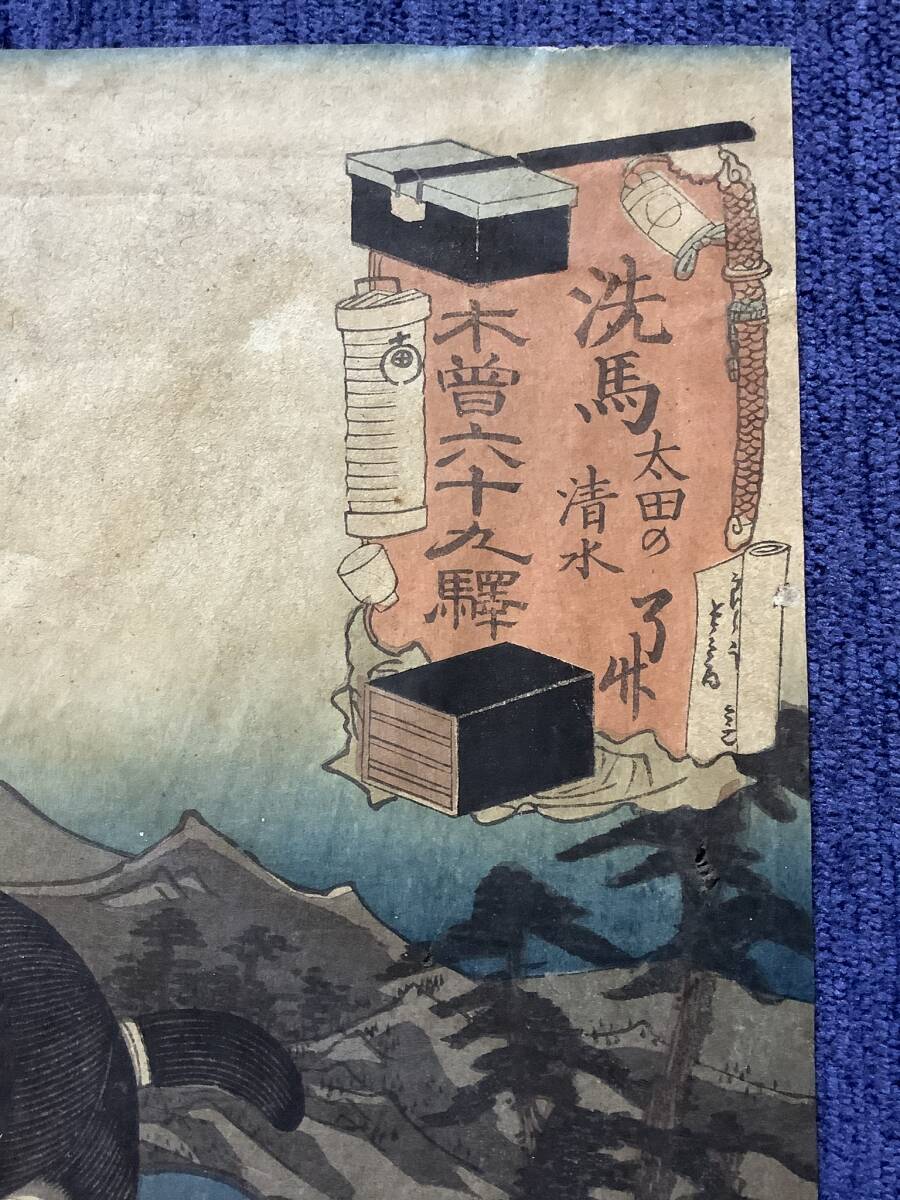 洗馬
太田の
清水
了㐂
木曽六十九驛